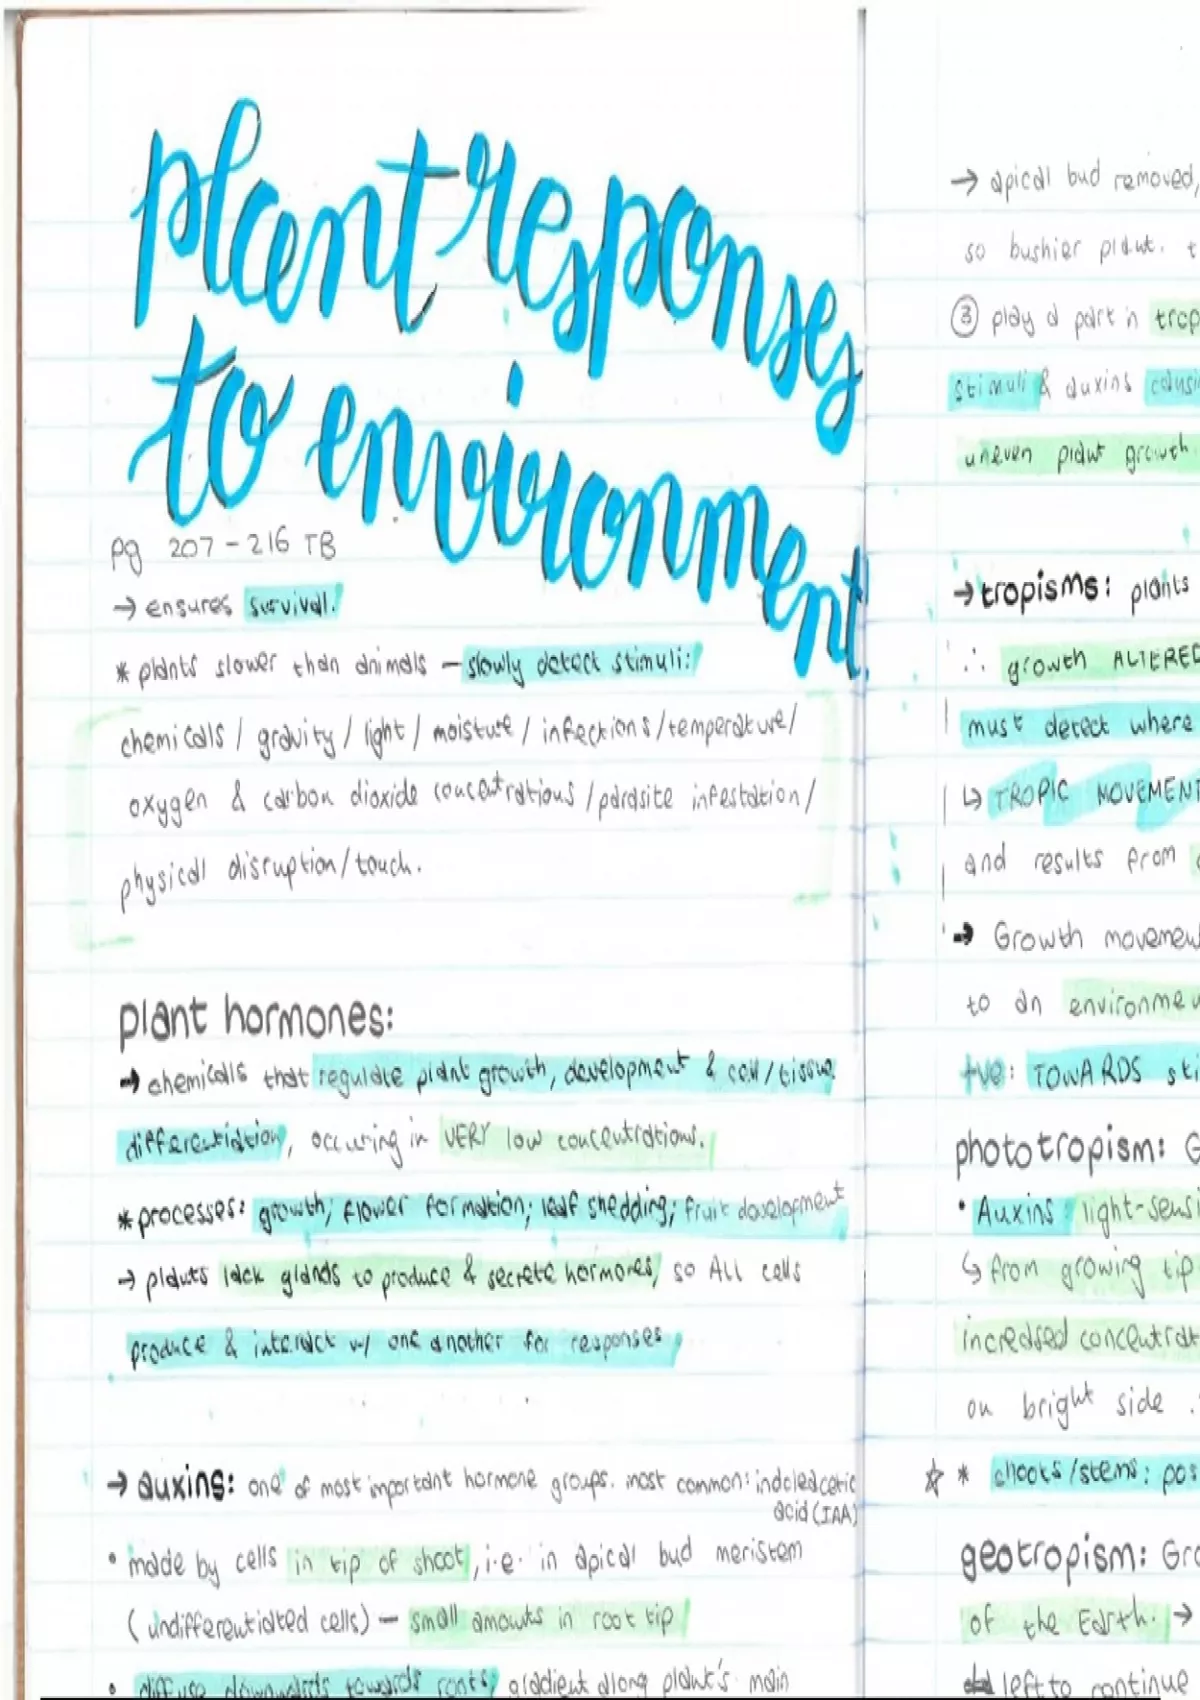 plant responses
to environment
pg 207 - 216 TB
→ ensures survival.
* plants slower than animals - slowly detect stimuli:
chemicals / gravity / light / moisture / infections / temperature /
oxygen & carbon dioxide concentrations / parasite infestation /
physical disruption / touch.
plant hormones:
→ chemicals that regulate plant growth, development & cell / tissue
differentiation, occurring in VERY low concentrations.
* processes: growth; flower formation; leaf shedding; fruit development
→ plants lack glands to produce & secrete hormones, so ALL cells
produce & interact w/ one another for responses
→ auxins: one of most important hormone groups. most common: indoleacetic
acid (IAA)
• made by cells in tip of shoot, i.e. in apical bud meristem
(undifferentiated cells) - small amounts in root tip
• diffuse downwards towards roots; gradient along plant's main
→ apical bud removed,
so bushier plant. t
③ play a part in trop
stimuli & auxins causi
uneven plant growth.
→ tropisms: plants
∴ growth ALTERED
must detect where
↳ TROPIC MOVEMENT
and results from
→ Growth movemen
to an environmen
+ve: TOWARDS sti
phototropism: G
• Auxins: light-sensi
↳ from growing tip
increased concentrat
on bright side ∴
☆ * shoots/stems: pos
geotropism: Gro
of the Earth. →
left to continue